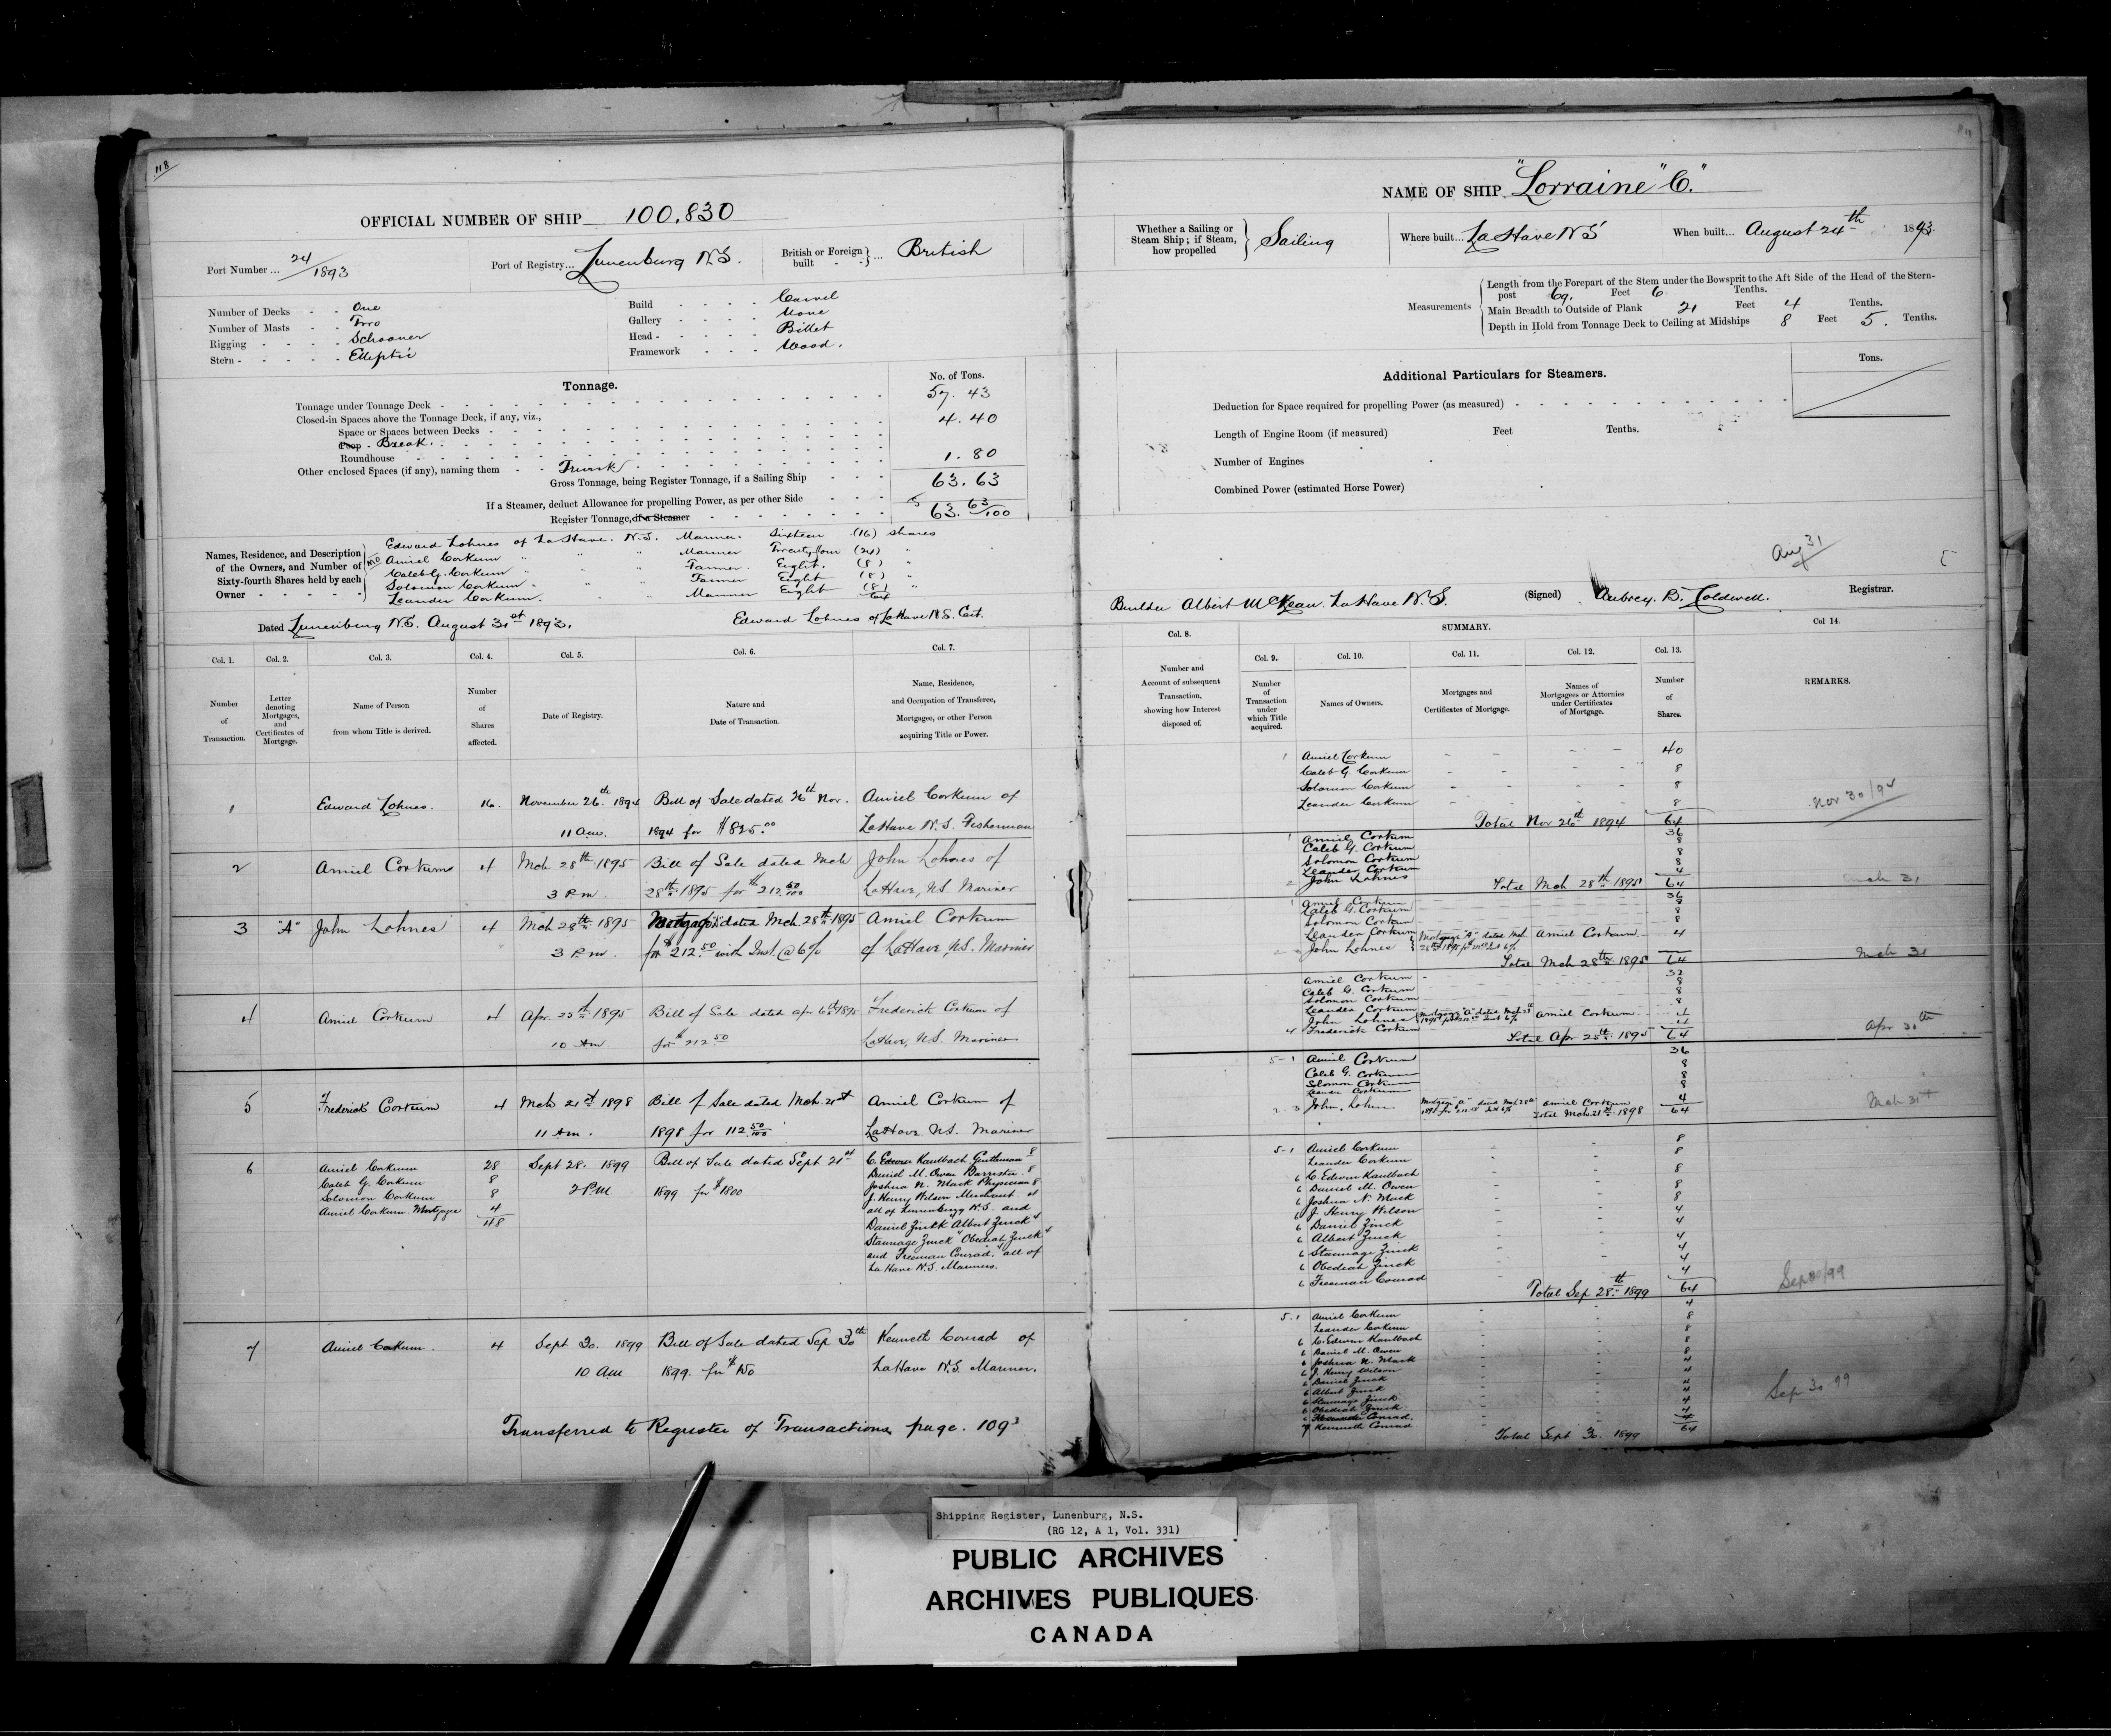 118
OFFICIAL NUMBER OF SHIP 100,830
Port Number ... 24/1893
Port of Registry... Lunenburg N.S.
British or Foreign built ... British
Number of Decks - - One
Number of Masts - - Two
Rigging - - - - Schooner
Stern - - - - - Elliptic
Build - - - - Carvel
Gallery - - - - None
Head - - - - - Billet
Framework - - - Wood.
Tonnage.
No. of Tons.
Tonnage under Tonnage Deck 57.43
Closed-in Spaces above the Tonnage Deck, if any, viz.,
Space or Spaces between Decks 4.40
Poop - Break.
Roundhouse
Other enclosed Spaces (if any), naming them - - Trunk 1.80
Gross Tonnage, being Register Tonnage, if a Sailing Ship 63.63
If a Steamer, deduct Allowance for propelling Power, as per other Side
Register Tonnage, if a Steamer 63. 63/100
Names, Residence, and Description of the Owners, and Number of Sixty-fourth Shares held by each Owner
Edward Lohnes of LaHave. N.S. Mariner. Sixteen (16) shares
MO Amiel Corkum " " " Mariner Twenty four (24) "
Caleb G. Corkum " " " Farmer. Eight. (8) "
Solomon Corkum " " " Farmer Eight (8) "
Leander Corkum. " " Mariner Eight (8) "
64
Dated Lunenburg N.S. August 31st 1893.
Edward Lohnes of LaHave N.S. Cert.
Col. 1. Col. 2. Col. 3. Col. 4. Col. 5. Col. 6. Col. 7.
Number of Transaction.
Letter denoting Mortgages, and Certificates of Mortgage.
Name of Person from whom Title is derived.
Number of Shares affected.
Date of Registry.
Nature and Date of Transaction.
Name, Residence, and Occupation of Transferee, Mortgagee, or other Person acquiring Title or Power.
1 Edward Lohnes. 16. November 26th 1894 Bill of Sale dated 26th Nov. Amiel Corkum of
11 a.m. 1894 for $825.00 LaHave N.S. Fisherman
2 Amiel Corkum 4 Mch 28th 1895 Bill of Sale dated Mch John Lohnes of
3 P.m. 28th 1895 for $212 50/100 LaHave, NS. Mariner
3 "A" John Lohnes 4 Mch 28th 1895 Mortgage "A" dated Mch. 28th 1895 Amiel Corkum
3 P.m. for $212.50 with Inst. @ 6% of LaHave, NS. Mariner
4 Amiel Corkum 4 Apr. 25th 1895 Bill of Sale dated apr 6th 1895 Frederick Corkum of
10 Am for $212 50 LaHave, NS. Mariner
5 Frederick Corkum 4 Mch 21st 1898 Bill of Sale dated Mch. 21st Amiel Corkum of
11 Am. 1898 for 112 50/100 LaHave NS. Mariner
6 Amiel Corkum 28 Sept 28. 1899 Bill of Sale dated Sept 21st C. Edwin Kaulbach, Gentleman 8
Caleb G. Corkum 8 Daniel M. Owen Barrister. 8
Solomon Corkum 8 2 P.M 1899 for $1800 Joshua N. Mack Physician 8
Amiel Corkum. Mortgagee 4 J. Henry Wilson Merchant 4
48 all of Lunenburg N.S. and
Daniel Zinck 4 Albert Zinck 4
Staunage Zinck 4 Obediah Zinck 4
and Freeman Conrad. 4 all of
LaHave N.S. Mariners.
7 Amiel Corkum. 4 Sept 30. 1899 Bill of Sale dated Sep 30th Kenneth Conrad of
10 Am 1899. for $150 LaHave N.S. Mariner.
Transferred to Register of Transactions page. 109
NAME OF SHIP "Lorraine "C."
Whether a Sailing or Steam Ship; if Steam, how propelled Sailing
Where built... LaHave N S
When built... August 24th 1893.
Measurements
Length from the Forepart of the Stem under the Bowsprit to the Aft Side of the Head of the Stern-
post 69. Feet 6 Tenths.
Main Breadth to Outside of Plank 21 Feet 4 Tenths.
Depth in Hold from Tonnage Deck to Ceiling at Midships 8 Feet 5. Tenths.
Additional Particulars for Steamers.
Tons.
Deduction for Space required for propelling Power (as measured)
Length of Engine Room (if measured) Feet Tenths.
Number of Engines
Combined Power (estimated Horse Power)
Aug 31
Builder Albert McKean. LaHave N.S. (Signed) Aubrey. B. Caldwell. Registrar.
SUMMARY.
Col. 8. Col. 9. Col. 10. Col. 11. Col. 12. Col. 13. Col 14.
Number and Account of subsequent Transaction, showing how Interest disposed of.
Number of Transaction under which Title acquired.
Names of Owners.
Mortgages and Certificates of Mortgage.
Names of Mortgagees or Attornies under Certificates of Mortgage.
Number of Shares.
REMARKS.
1 Amiel Corkum - - - - 40
Caleb G. Corkum - - - - 8
Solomon Corkum - - - - 8
Leander Corkum - - - - 8
Total Nov 26th 1894 64
Nov 30/94
1 Amiel Corkum 36
Caleb G. Corkum 8
Solomon Corkum 8
Leander Corkum 8
2 John Lohnes 4
Total Mch 28th 1895 64
Mch 31
1 Amiel Corkum 36
Caleb G. Corkum 8
Solomon Corkum 8
Leander Corkum 8
2 - 3 John Lohnes Mortgage "A" dated Mch 28th 1895 Amiel Corkum 4
Total Mch 28th 1895 64
Mch 31
Amiel Corkum 32
Caleb G. Corkum 8
Solomon Corkum 8
Leander Corkum 8
John Lohnes Mortgage "A" dated Mch 28th Amiel Corkum 4
4 Frederick Corkum 4
Total Apr 25th 1895 64
Apr 30th
5 - 1 Amiel Corkum 36
Caleb G. Corkum 8
Solomon Corkum 8
Leander Corkum 8
2 - 3 John. Lohnes Mortgage "A" dated Mch 28th Amiel Corkum 4
Total Mch. 21st 1898 64
Mch 31st
5 - 1 Amiel Corkum - - 8
Leander Corkum - - 8
6 C. Edwin Kaulbach - - 8
6 Daniel M. Owen - - 8
6 Joshua N. Mack - - 8
6 J. Henry Wilson - - 4
6 Daniel Zinck - - 4
6 Albert Zinck - - 4
6 Staunage Zinck - - 4
6 Obediah Zinck - - 4
6 Freeman Conrad - - 4
Total Sep 28th 1899 64
Sep 30/99
5 . 1 Amiel Corkum - - 4
Leander Corkum - - 8
6 C. Edwin Kaulbach - - 8
6 Daniel M. Owen - - 8
6 Joshua N. Mack - - 8
6 J. Henry Wilson - - 4
6 Daniel Zinck - - 4
6 Albert Zinck - - 4
6 Staunage Zinck - - 4
6 Obediah Zinck - - 4
6 Conrad. - - 4
7 Kenneth Conrad - - 4
Total Sept 30. 1899 64
Sep 30 99
Shipping Register, Lunenburg, N.S.
(RG 12, A 1, Vol. 331)
PUBLIC ARCHIVES
ARCHIVES PUBLIQUES
CANADA